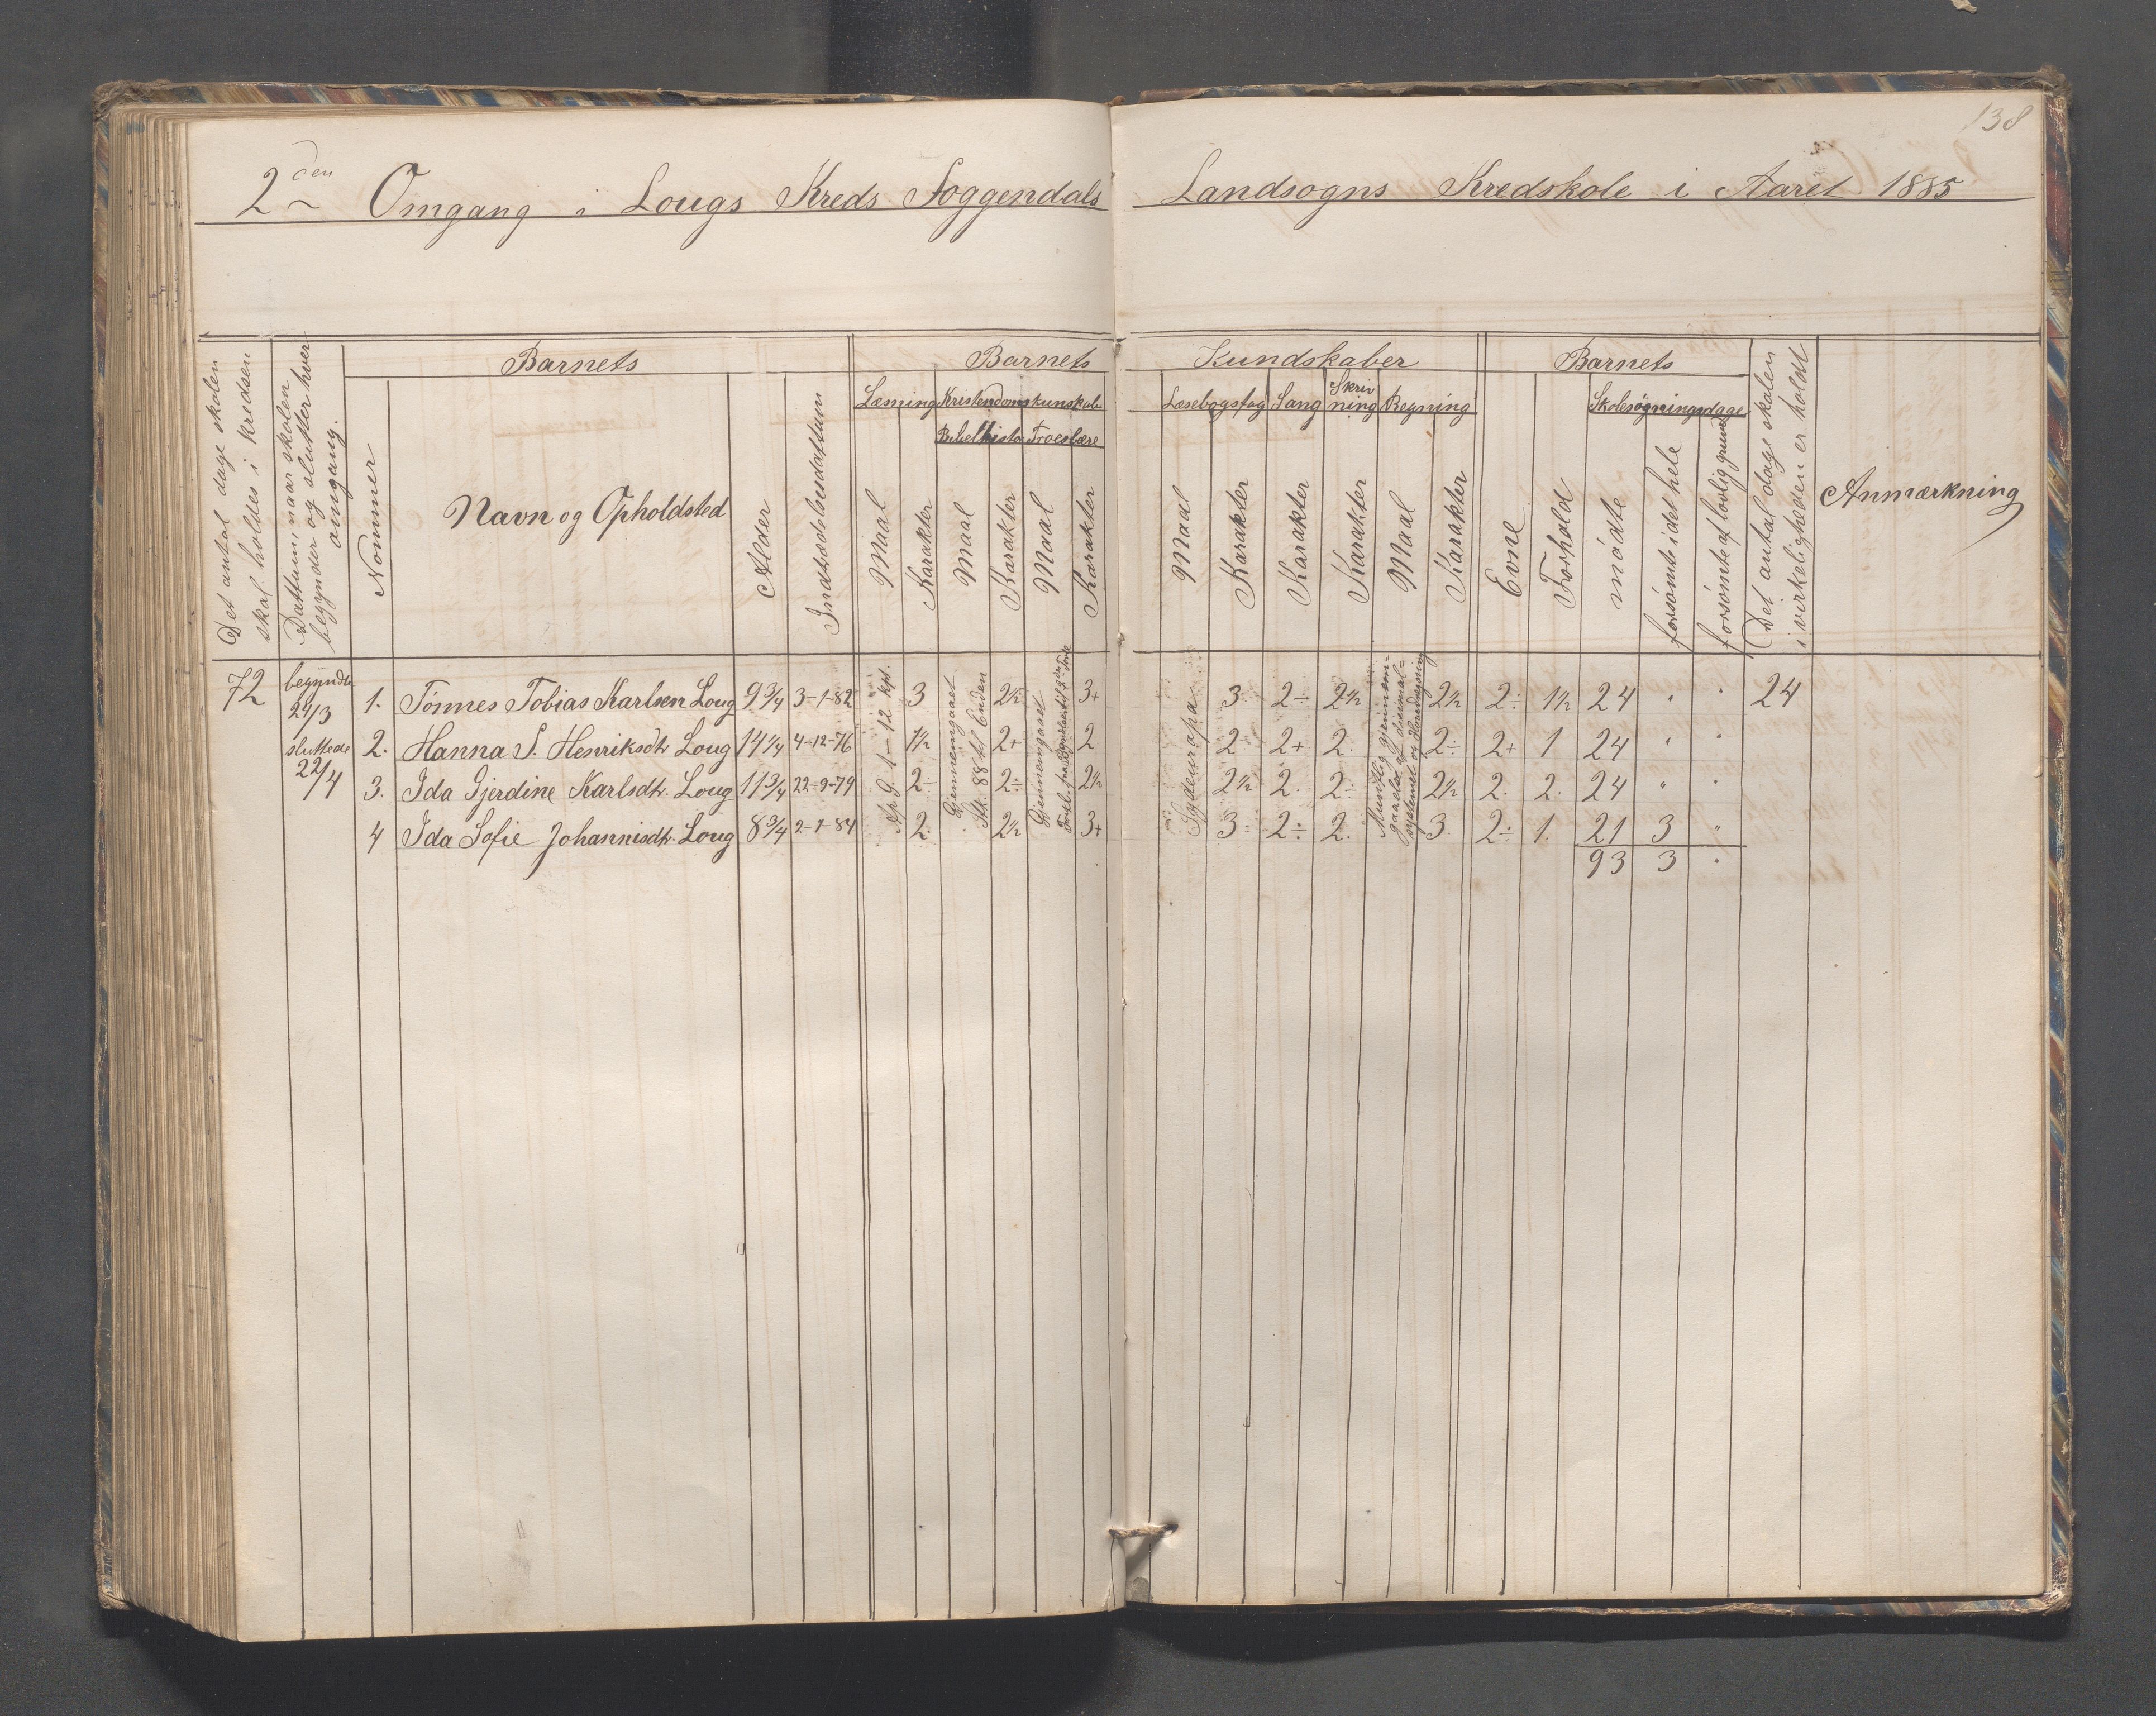 138
2den Omgang i Lougs Kreds Soggendals Landsogns Kredskole i Aaret 1885
Det antal dage skolen skal holdes i kredsen
Dattum, naar skolen begynder og slutter hver omgang.
Barnets
Nommer
Navn og Opholdsted
Alder
Indtrædelsesdattum
Barnets Kundskaber
Læsning
Maal
Karakter
Kristendomskunskab
Bibelhisto
Maal
Karakter
Troeslære
Maal
Karakter
Læsebogsfag
Maal
Karakter
Sang
Karakter
Skrivning
Karakter
Regning
Maal
Karakter
Barnets
Evne
Forhold
Skolesøgningsdage
mödte
forsömte i det hele
forsömte af lovlig grund
Det antal dage skolen i virkeligheden er holdt
Anmærkning
72 begyndte 24/3 sluttede 22/4
Ap. G. 1-12 kpl.
Gjennemgaaet Stk. 88 til Enden
Gjennemgaaet
Sydeuropa
1. Tönnes Tobias Karlsen Loug 9 3/4 3-1-82 3 2½ 3+ 3 2÷ 2½ 2½ 2÷ 1½ 24 " " 24
2. Hanna S. Henriksdtr Loug 14 1/4 4-12-76 1½ 2+ 2 2 2+ 2. 2÷ 2+ 1 24 " "
3. Ida Gjerdine Karlsdtr. Loug 11 3/4 22-9-79 2÷ 2÷ 2½ 2½ 2. 2÷ 2½ 2. 2. 24 " "
4 Ida Sofie Johannisdtr. Loug 8 3/4 2-1-84 2. 2½ 3+ 3 2÷ 2. 3. 2÷ 1. 21 3 "
93 3 "